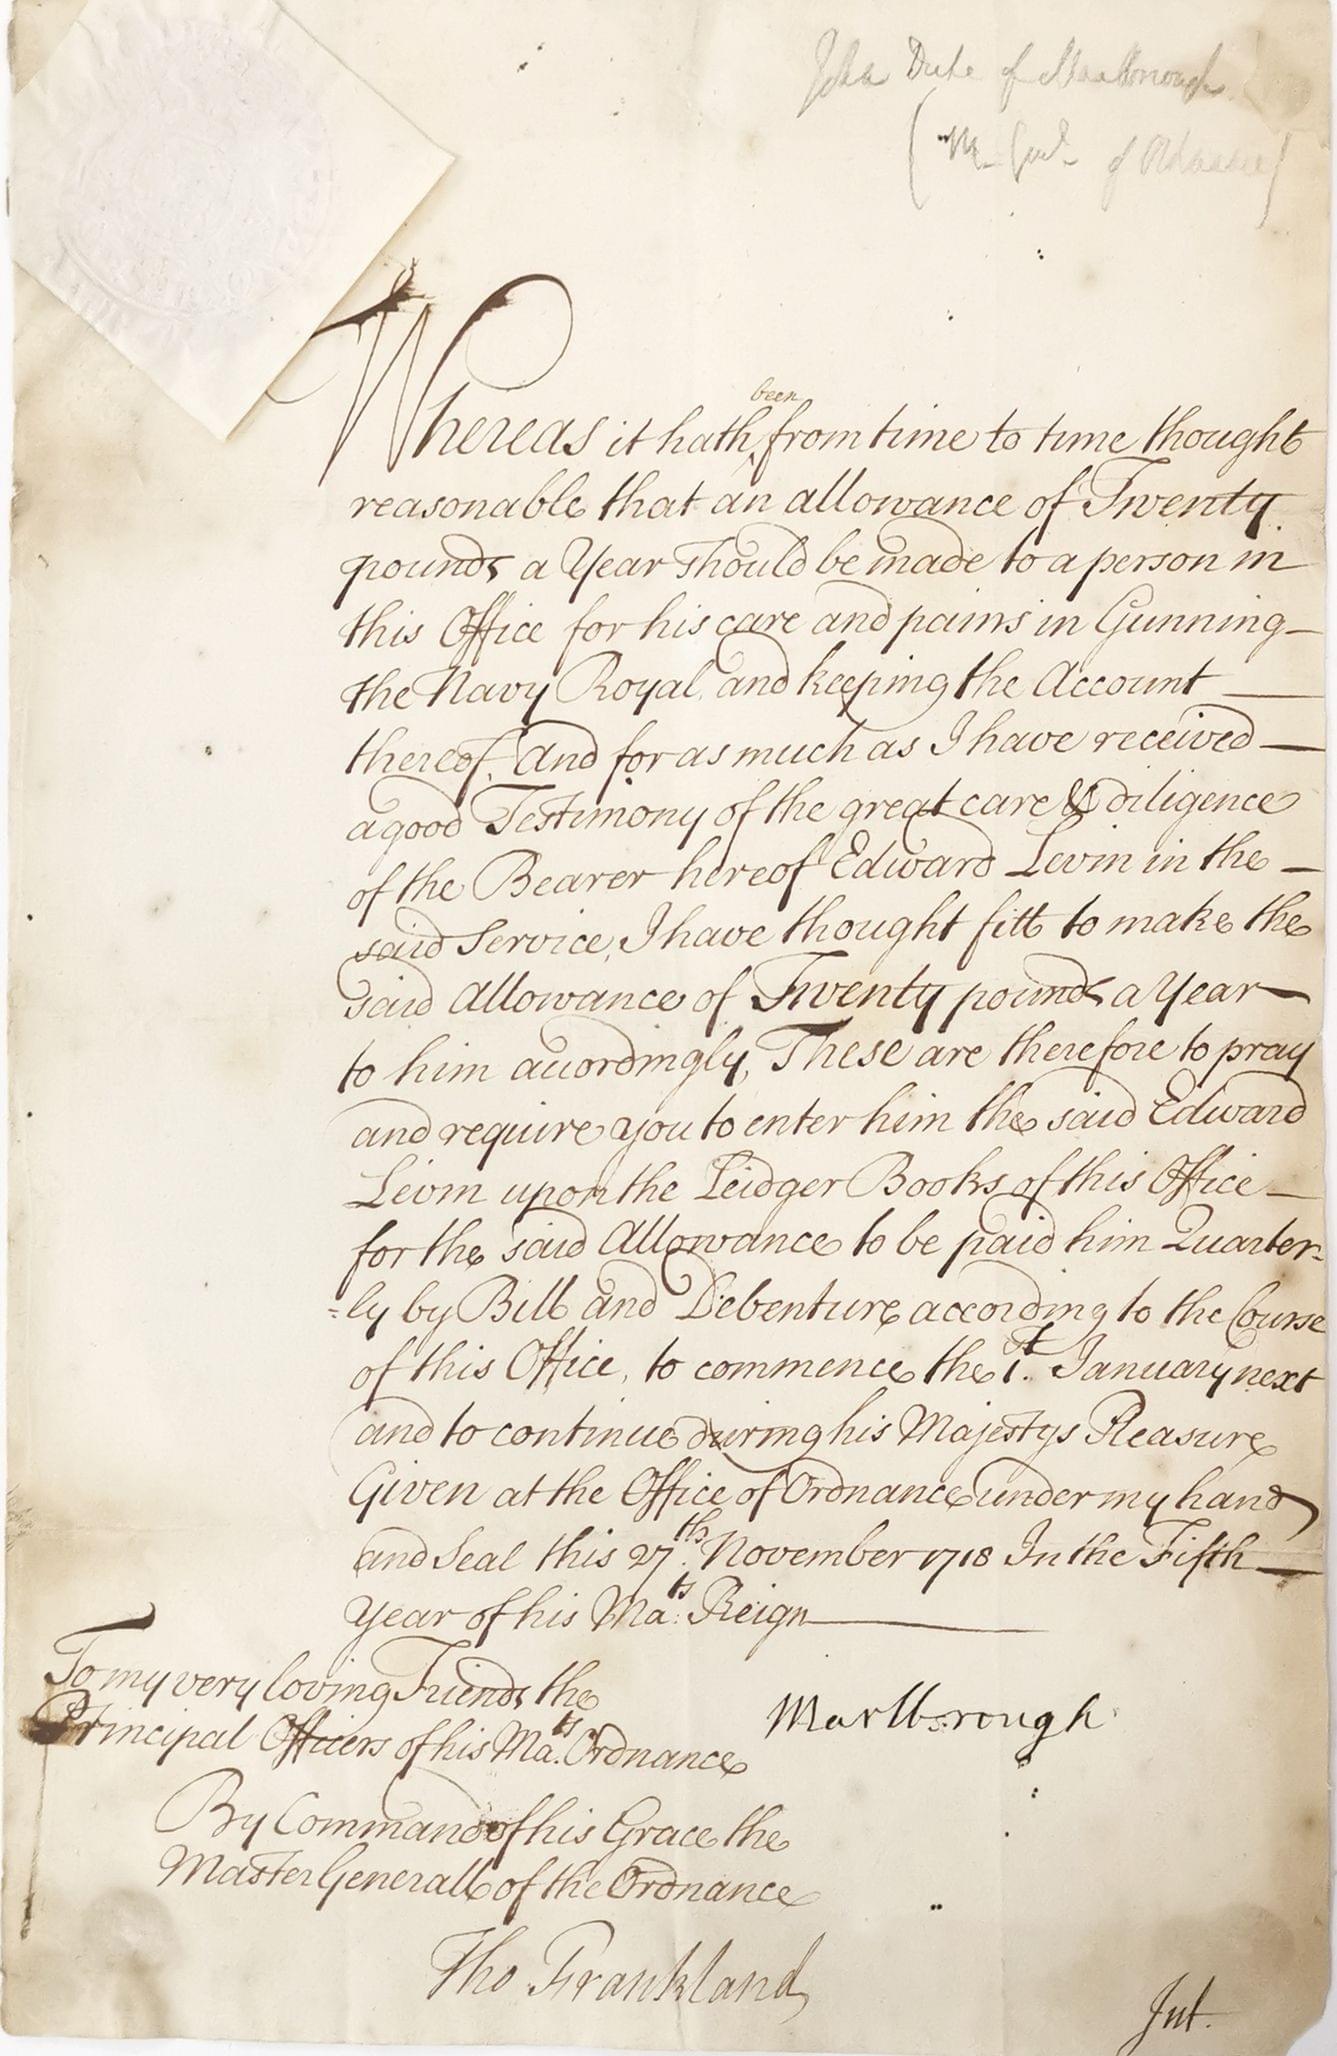 John Duke of Marlborough
(M Genl of Ordnance)
been
Whereas it hath ‸ from time to time thought
reasonable that an allowance of Twenty
pounds a Year should be made to a person in
this Office for his care and pains in Gunning
the Navy Royal and keeping the Account
thereof, And for as much as I have received
a good Testimony of the great care & diligence
of the Bearer hereof Edward Levin in the
said Service, I have thought fitt to make the
said Allowance of Twenty pounds a Year
to him accordingly, These are therefore to pray
and require you to enter him the said Edward
Levin upon the Leidger Books of this Office
for the said Allowance to be paid him Quarter-
=ly by Bill and Debenture according to the Course
of this Office, to commence the 1st. January next
and to continue during his Majestys Pleasure
Given at the Office of Ordnance under my hand
and Seal this 27th. November 1718 In the Fifth
Year of his Mats: Reign
To my very loving Friends the
Principal Officers of his Mats. Ordnance
Marlborough
By Command of his Grace the
Master Generall of the Ordnance
Tho Frankland
Int.